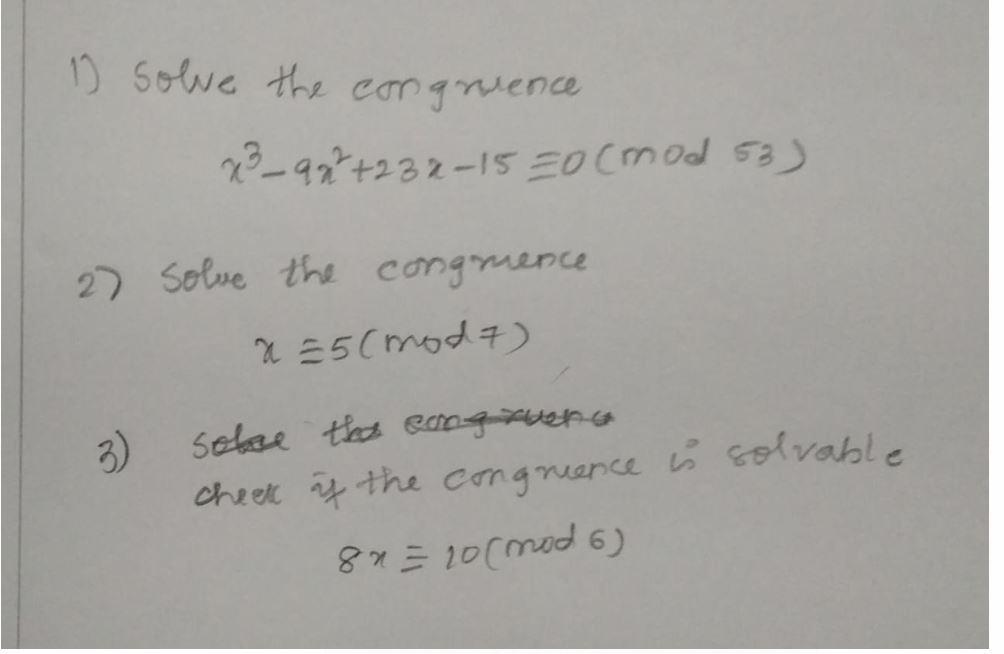 1) Solve the congruence
x³-9x²+23x-15≡0(mod 53)
2) Solve the congruence
x≡5(mod7)
3) Solve the congruence
check if the congruence is solvable
8x≡10(mod 6)